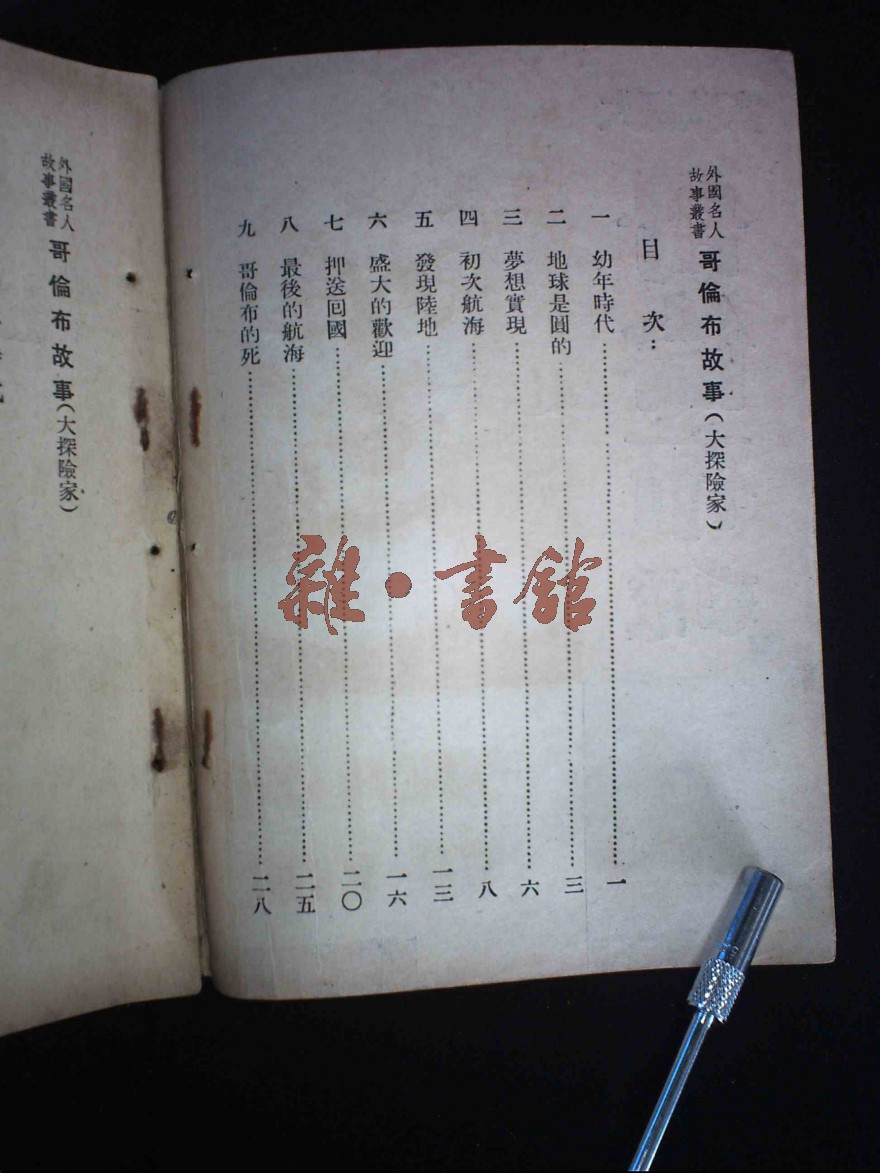 外國名人
故事叢書
哥倫布故事（大探險家）
目　次：
一　幼年時代……一
二　地球是圓的……三
三　夢想實現……六
四　初次航海……八
五　發現陸地……一三
六　盛大的歡迎……一六
七　押送回國……二〇
八　最後的航海……二五
九　哥倫布的死……二八
外國名人
故事叢書
哥倫布故事（大探險家）
雜·書館